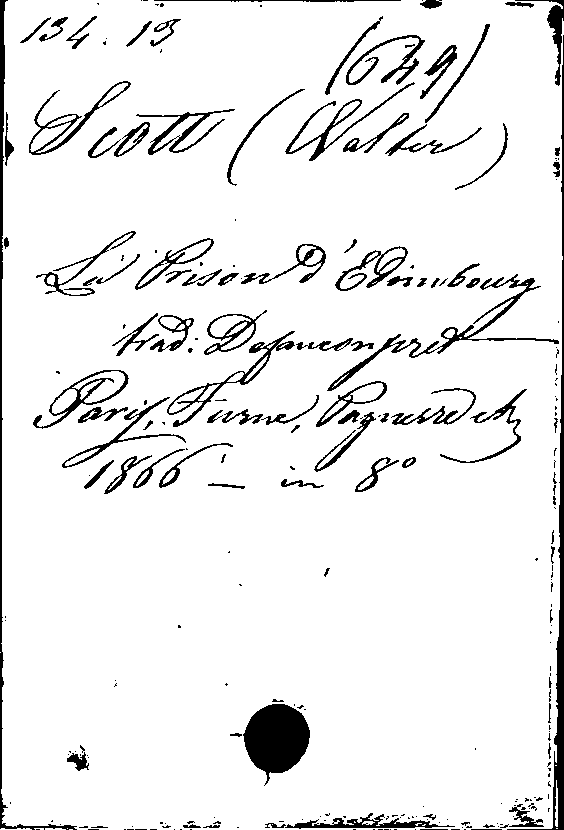 134.13.
(649)
Scott (Walter)
La Prison d'Edimbourg
trad: Defauconpret
Paris, Furne, Pagnerre etc
1866 — in 8°